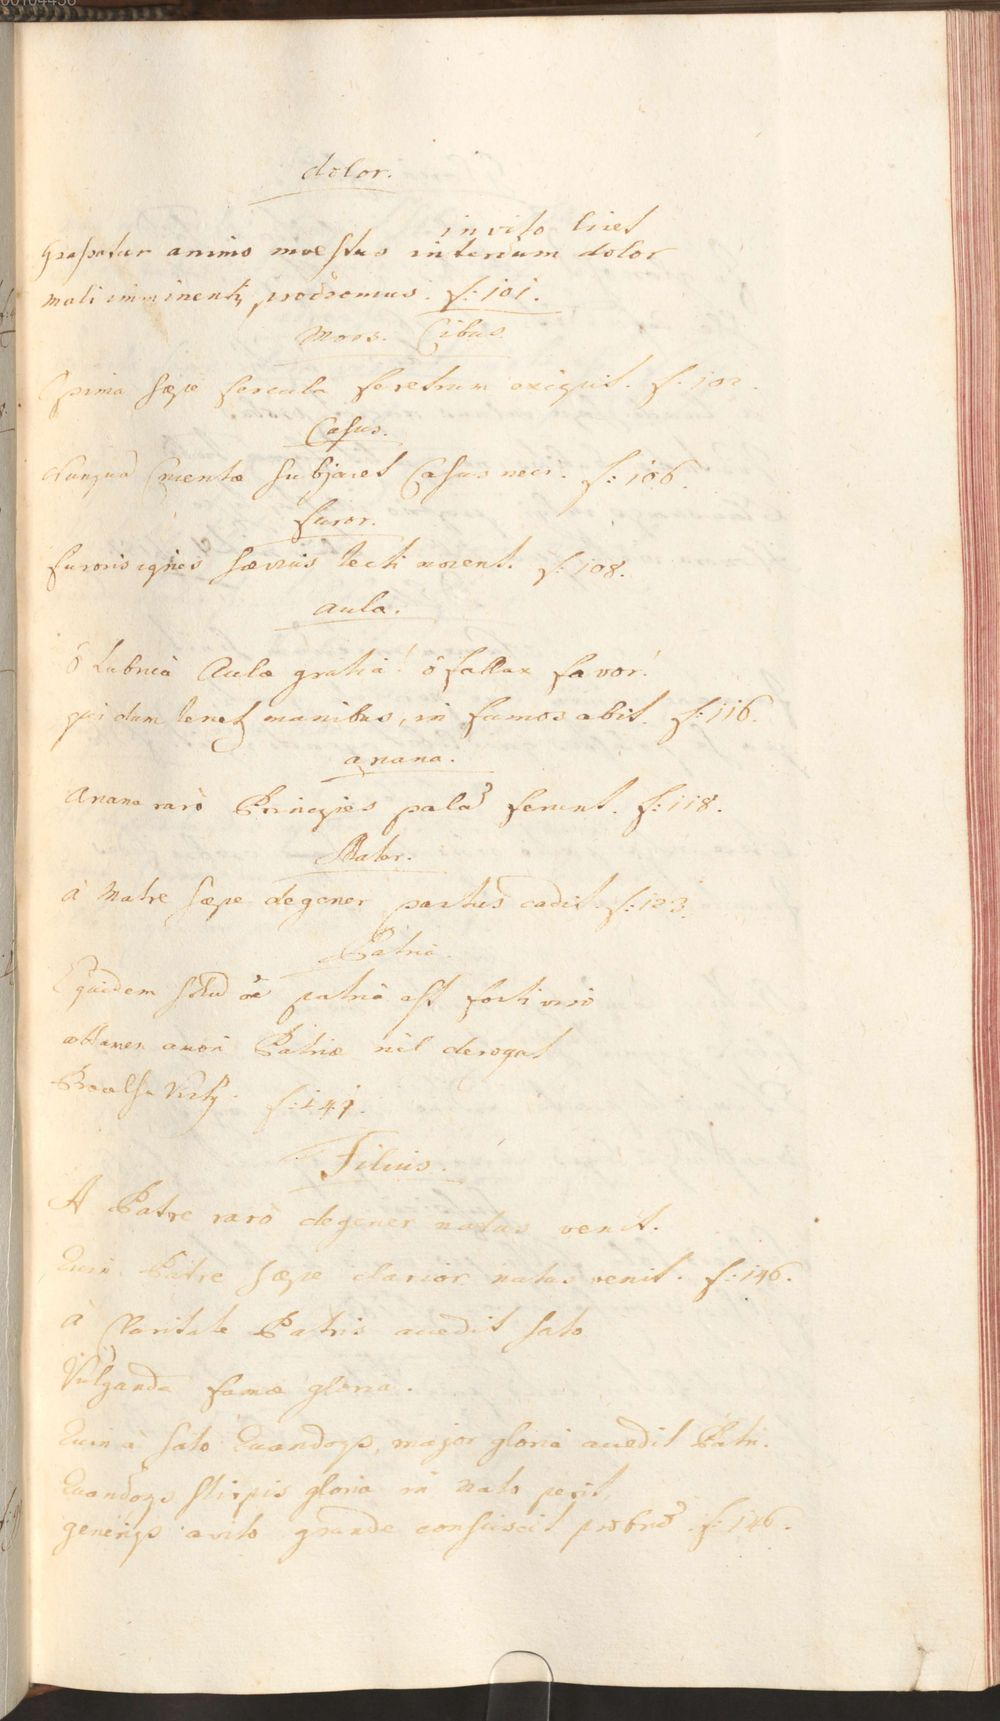 dolor.
invito licet
Grassatur animo moestus interdum dolor
mali imminentis prodromus. f: 101.
Mors. Cibus.
Opima sæpe fercula feretrum exigunt. f: 102.
Casus.
Nunquã Cruentæ subjacet Casus neci. f: 106.
furor.
furoris ignes sævius tecti vorent. f: 108.
aula.
ô Lubrica Aulæ gratia! ô fallax favor!
qui dum tenetur manibus, in fumos abit. f: 116.
anana.
Anana rarò Principes palã ferunt. f: 118.
Mater.
à Matre sæpe degener partus cadit. f: 123.
Patria.
Equidem patria est forti viro
attamen amori Patriæ nil derogat
f: 141.
Filius.
A Patre rarò degener natus venit.
Quin Patre sæpe clarior natus venit. f: 146.
à Claritate Patris accedit sato
Vulganda famæ gloria.
Quin à sato quandoque, major gloria accedit Patri.
Quandoque stirpis gloria in nato perit,
generique avito grande consciscit probrũ. f: 146.